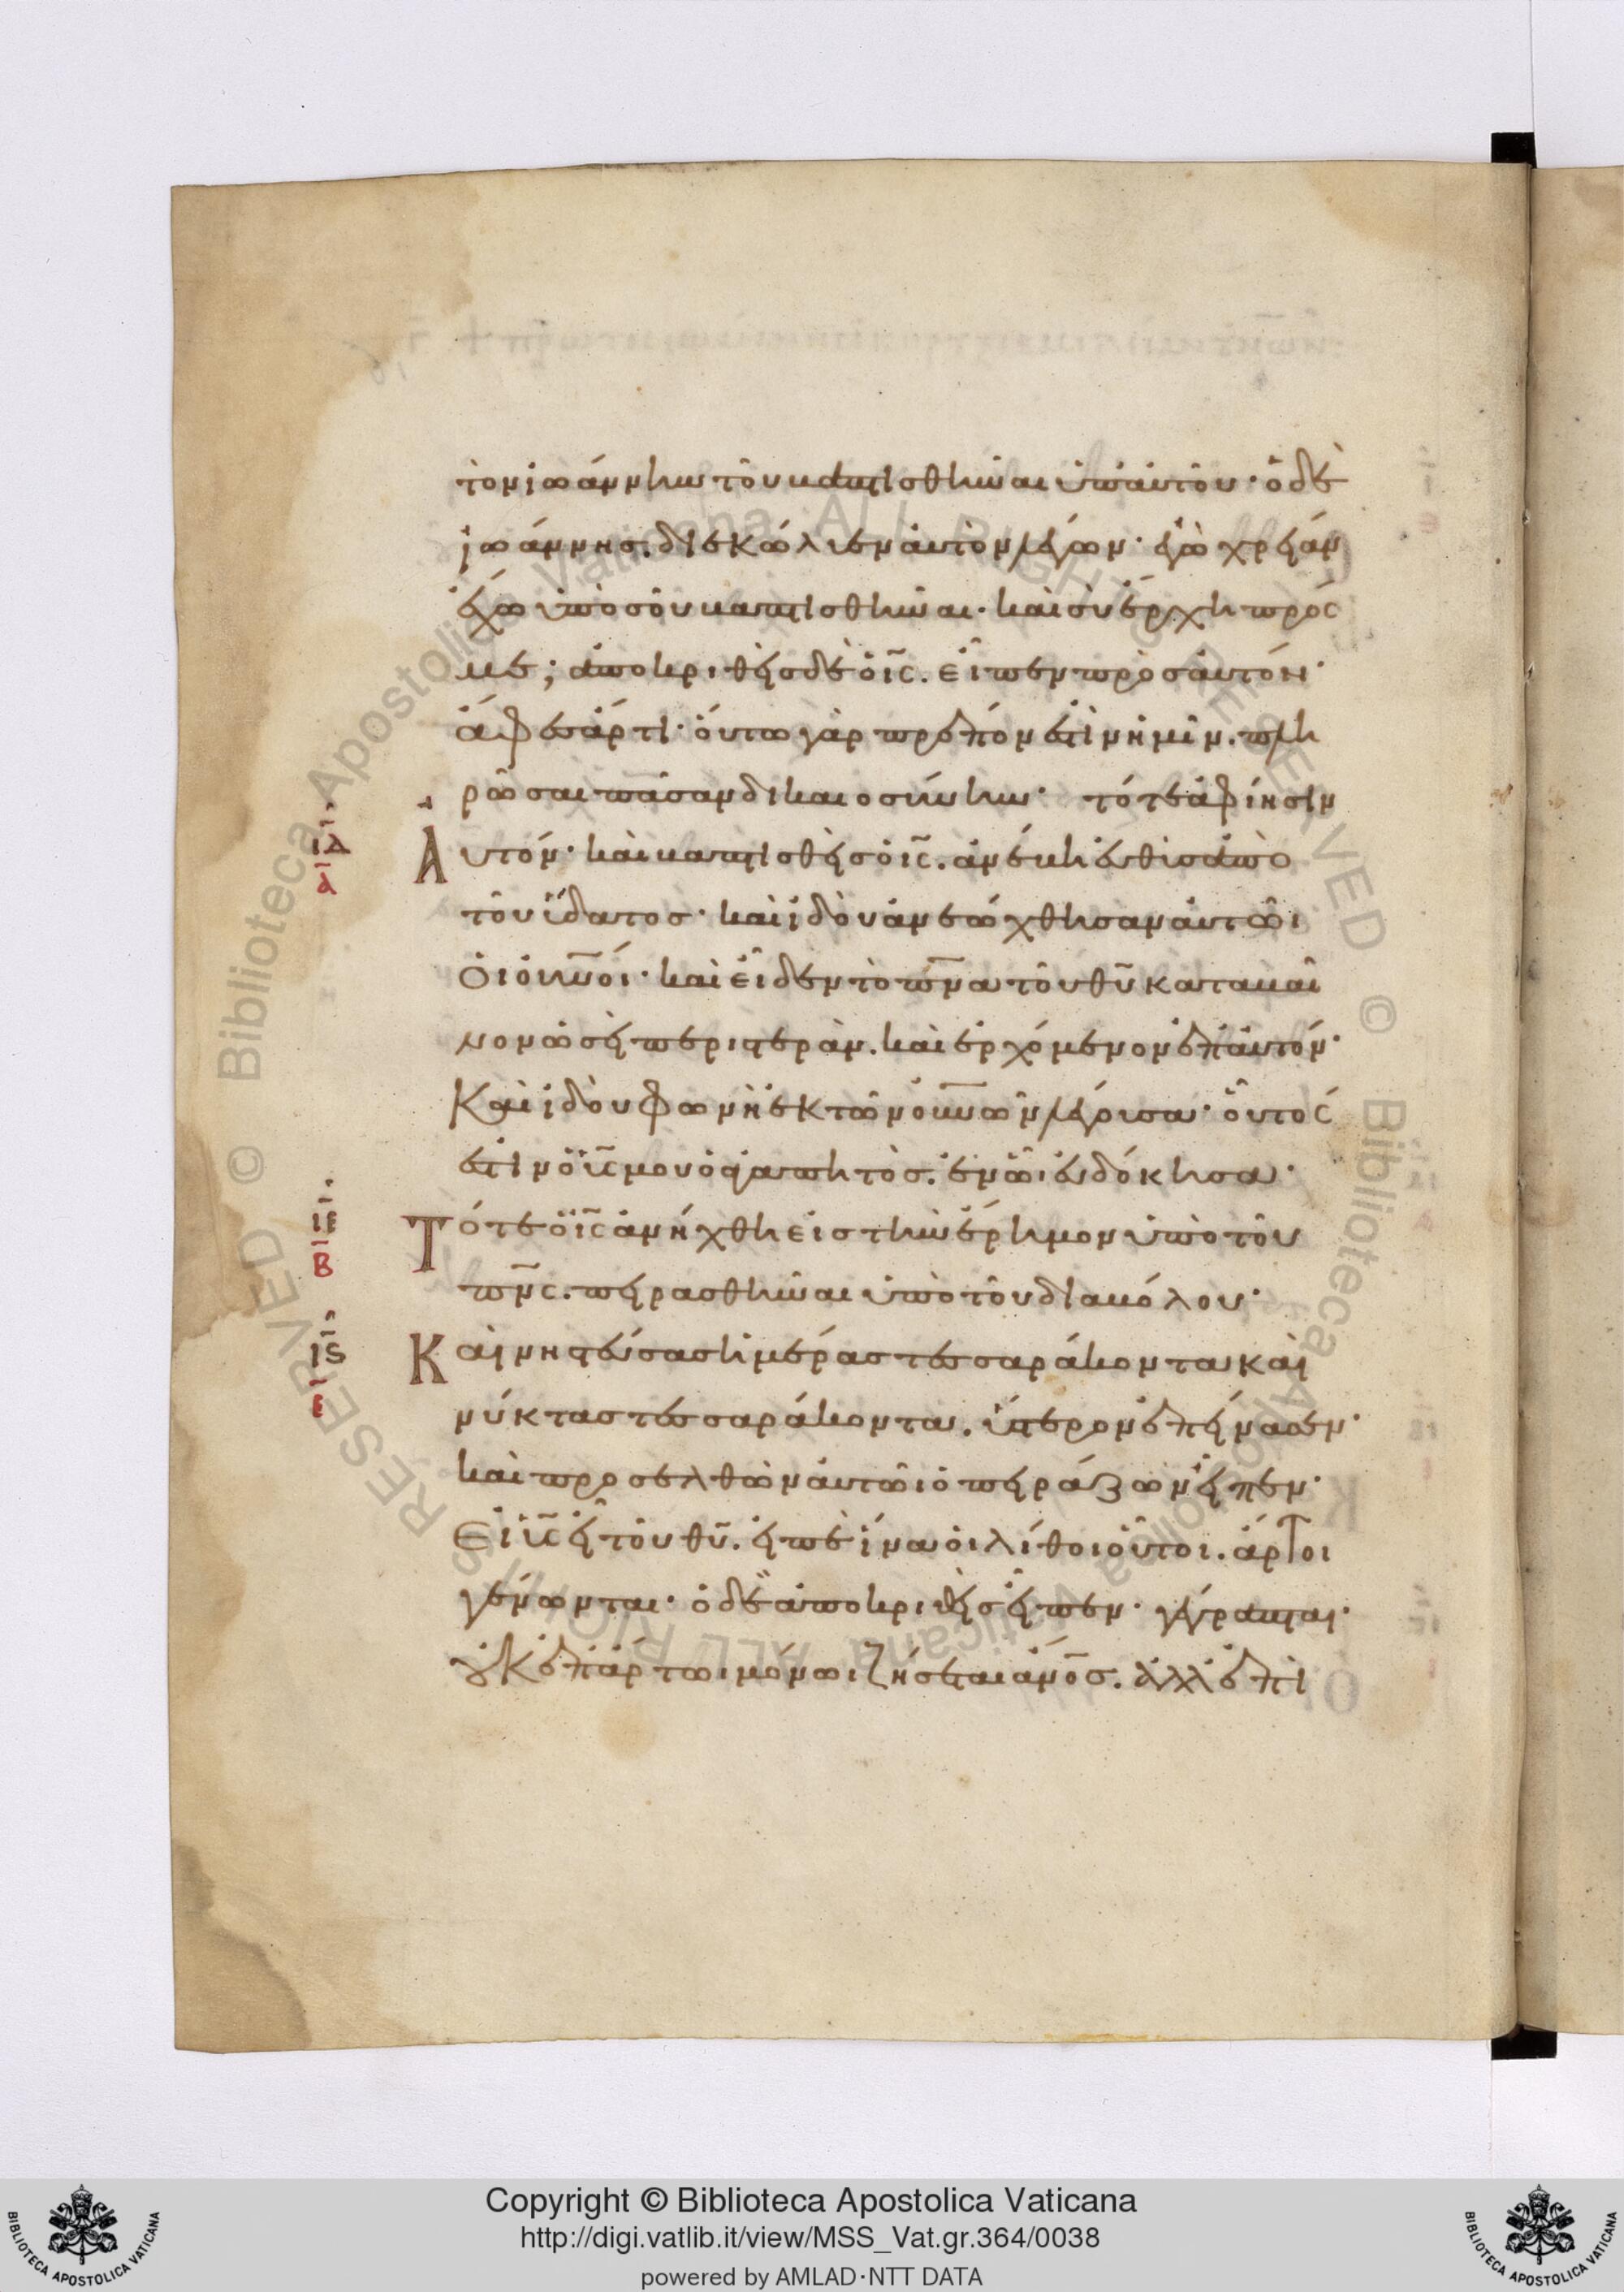 τὸν ἰωάννην τοῦ βαπτισθῆναι ὑπ' αὐτοῦ· ὁ δὲ
ἰωάννης. διεκώλυεν αὐτὸν λέγων· ἐγὼ χρείαν
ἔχω ὑπὸ σοῦ βαπτισθῆναι· καὶ σὺ ἔρχη πρός
με; ἀποκριθεὶς δὲ ὁ ἰ̅ς̅. εἶπεν πρὸς αὐτόν·
ἄφες ἄρτι· οὕτω γὰρ πρέπον ἐστὶν ἡμῖν. πλη
ρῶσαι πᾶσαν δικαιοσύνην· τότε ἀφίησιν
Αὐτόν· καὶ βαπτισθεὶς ὁ ἰ̅ς̅. ἀνέβη εὐθὺς ἀπὸ
τοῦ ὕδατος· καὶ ἰδοὺ ἀνεώχθησαν αὐτῶι
οἱ ο̅υ̅ν̅οί· καὶ εἶδεν τὸ π̅ν̅α̅ τοῦ θ̅υ̅ καταβαῖ
νον ὡσεὶ περιστερὰν. καὶ ἐρχόμενον ἐπ' αὐτόν·
Καὶ ἰδοὺ φωνὴ ἐκ τῶν ο̅υ̅ν̅ῶν λέγουσα· οὗτός
ἐστιν ὁ υ̅ς̅ μου ὁ ἀγαπητὸς. ἐν ὧι εὐδόκησα·
Τότε ὁ ἰ̅ς̅ ἀνήχθη εἰς τὴν ἔρημον ὑπὸ τοῦ
π̅ν̅ς̅. πειρασθῆναι ὑπὸ τοῦ διαβόλου·
Καὶ νηστεύσας ἡμέρας τεσσαράκοντα καὶ
νύκτας τεσσαράκοντα. ὕστερον ἐπείνασεν·
καὶ προσελθὼν αὐτῶι ὁ πειράζων εἶπεν·
Εἰ υ̅ς̅ εἶ τοῦ θ̅υ̅. εἰπὲ ἵνα οἱ λίθοι οὗτοι. ἄρτοι
γένωνται· ὁ δὲ ἀποκριθεὶς εἶπεν· γέγραπται·
οὐκ ἐπ' ἄρτωι μόνωι ζήσεται ἄν̅ο̅ς̅. ἀλλ' ἐπὶ
ΙΔ
Α
ΙΕ
Β
ΙϚ
Ε
Copyright © Biblioteca Apostolica Vaticana
http://digi.vatlib.it/view/MSS_Vat.gr.364/0038
powered by AMLAD·NTT DATA
BIBLIOTECA APOSTOLICA VATICANA
BIBLIOTECA APOSTOLICA VATICANA
© Biblioteca Apostolica Vaticana ALL RIGHTS RESERVED © Biblioteca Apostolica Vaticana ALL RIGHTS RESERVED